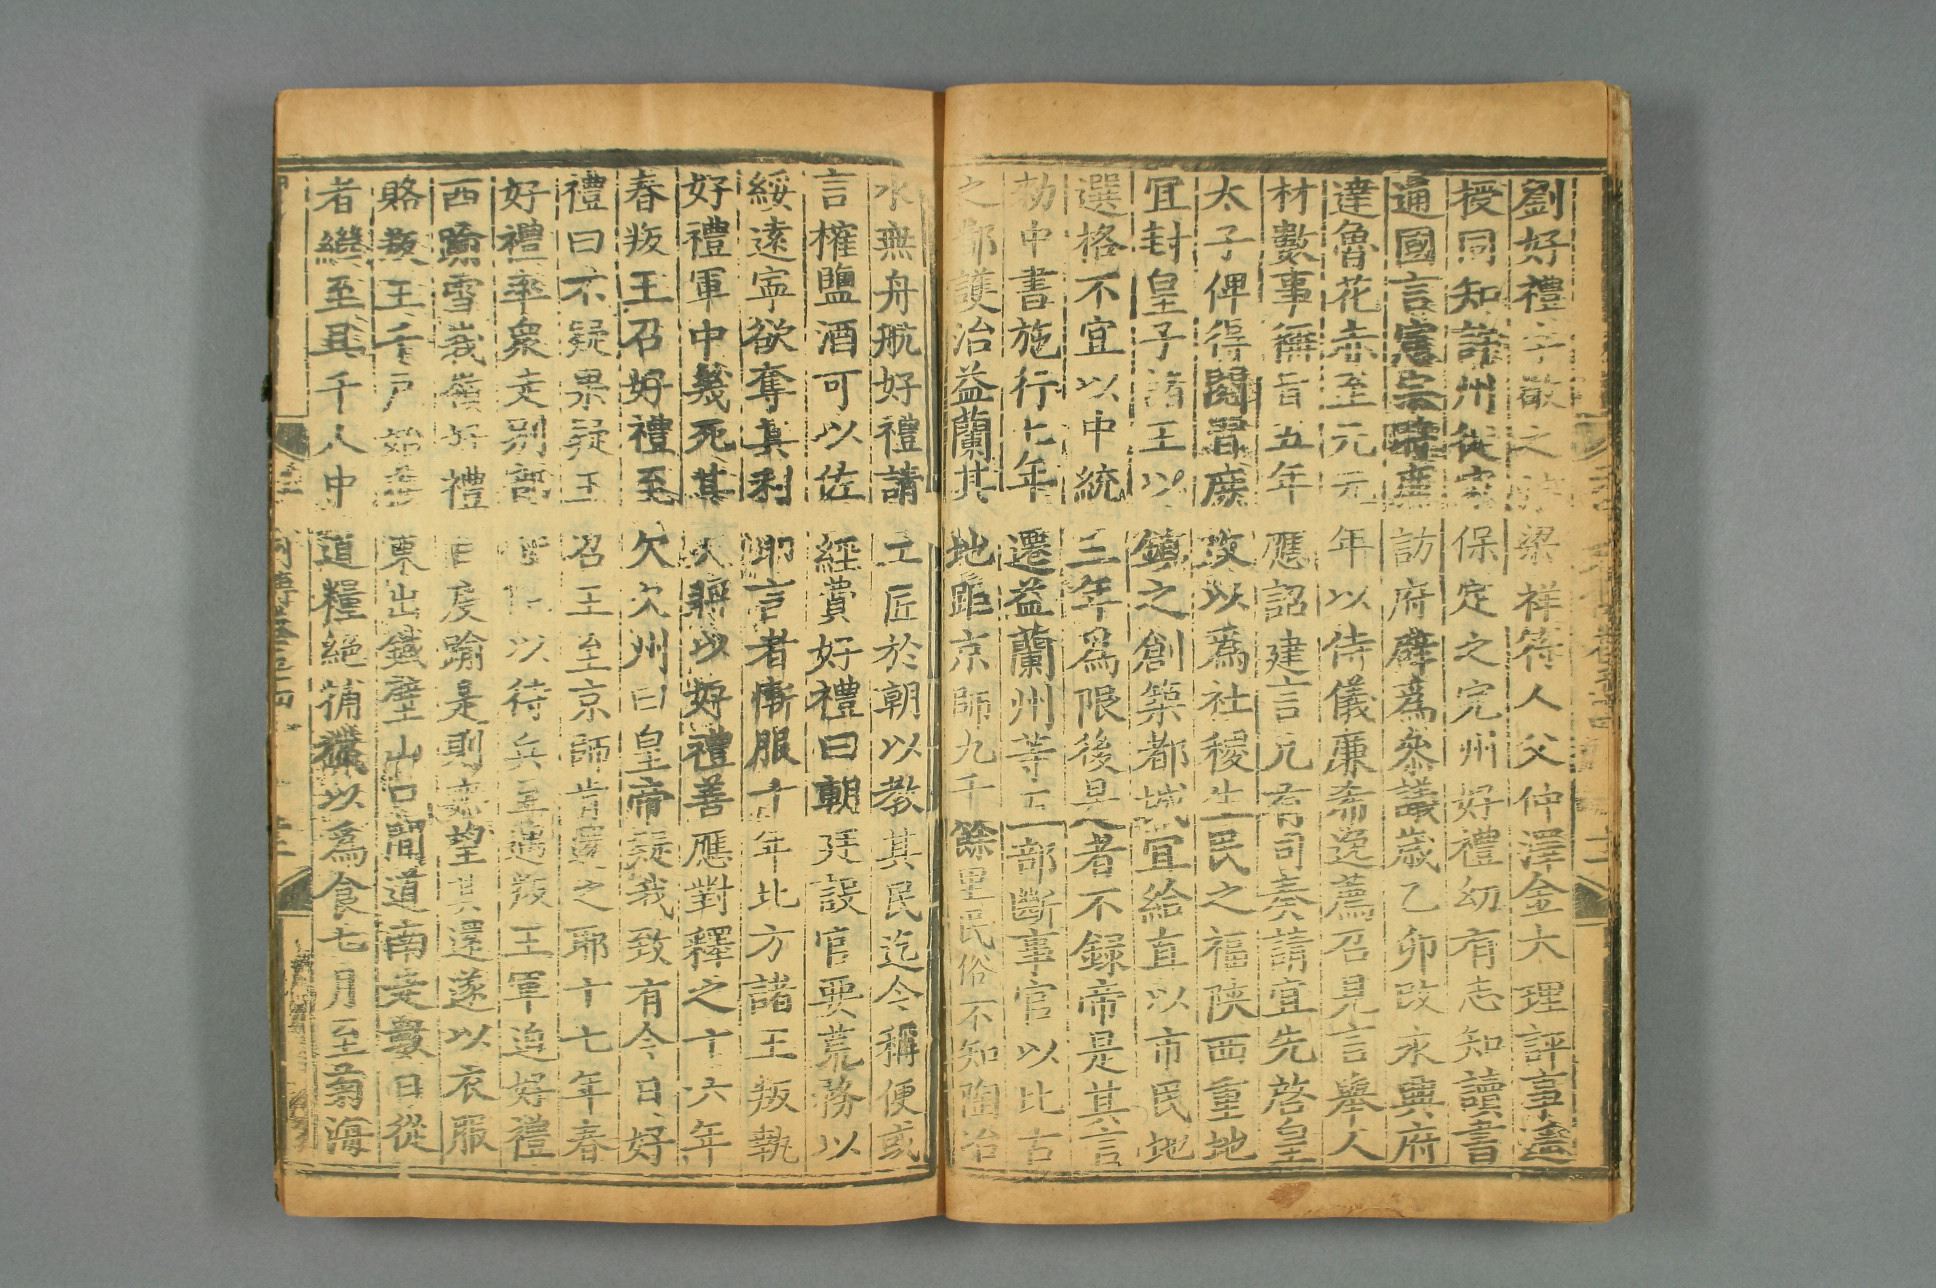 劉好禮字敬之汴梁祥符人父仲澤金大理評事遥
授同知許州徙家保定之完州好禮幼有志知讀書
通國言憲宗時廉訪府辟爲叅議歲乙卯改永興府
達魯花赤至元元年以侍儀廉希逸薦召見言舉人
材數事稱旨五年應詔建言凡有司奏請宜先啓皇
太子俾得閱習庶政以爲社稷生民之福陝西重地
宜封皇子諸王以鎮之創築都城宜給直以市民地
選格不宜以中統三年爲限後是者不錄帝是其言
勅中書施行七年遷益蘭州等五部斷事官以比古
之都護治益蘭其地距京師九千餘里民俗不知陶冶
水無舟航好禮請工匠於朝以敎其民迄今稱便或
言榷鹽酒可以佐經費好禮曰朝廷設官要荒務以
綏遠寧欲奪其利耶言者慚服十年北方諸王叛執
好禮軍中幾死其大將以好禮善應對釋之十六年
春叛王召好禮至欠欠州曰皇帝疑我致有今日好
禮曰不疑果疑王召王至京師肯還之耶十七年春
好禮率衆走別部守以待兵至遇叛王軍迫好禮
西踰雪峩嶺好禮自度踰是則無望其還遂以衣服
賂叛王千戸始得東出鐵壁山口間道南走數日從
者繼至且千人中道糧絕捕獵以爲食七月至菊海